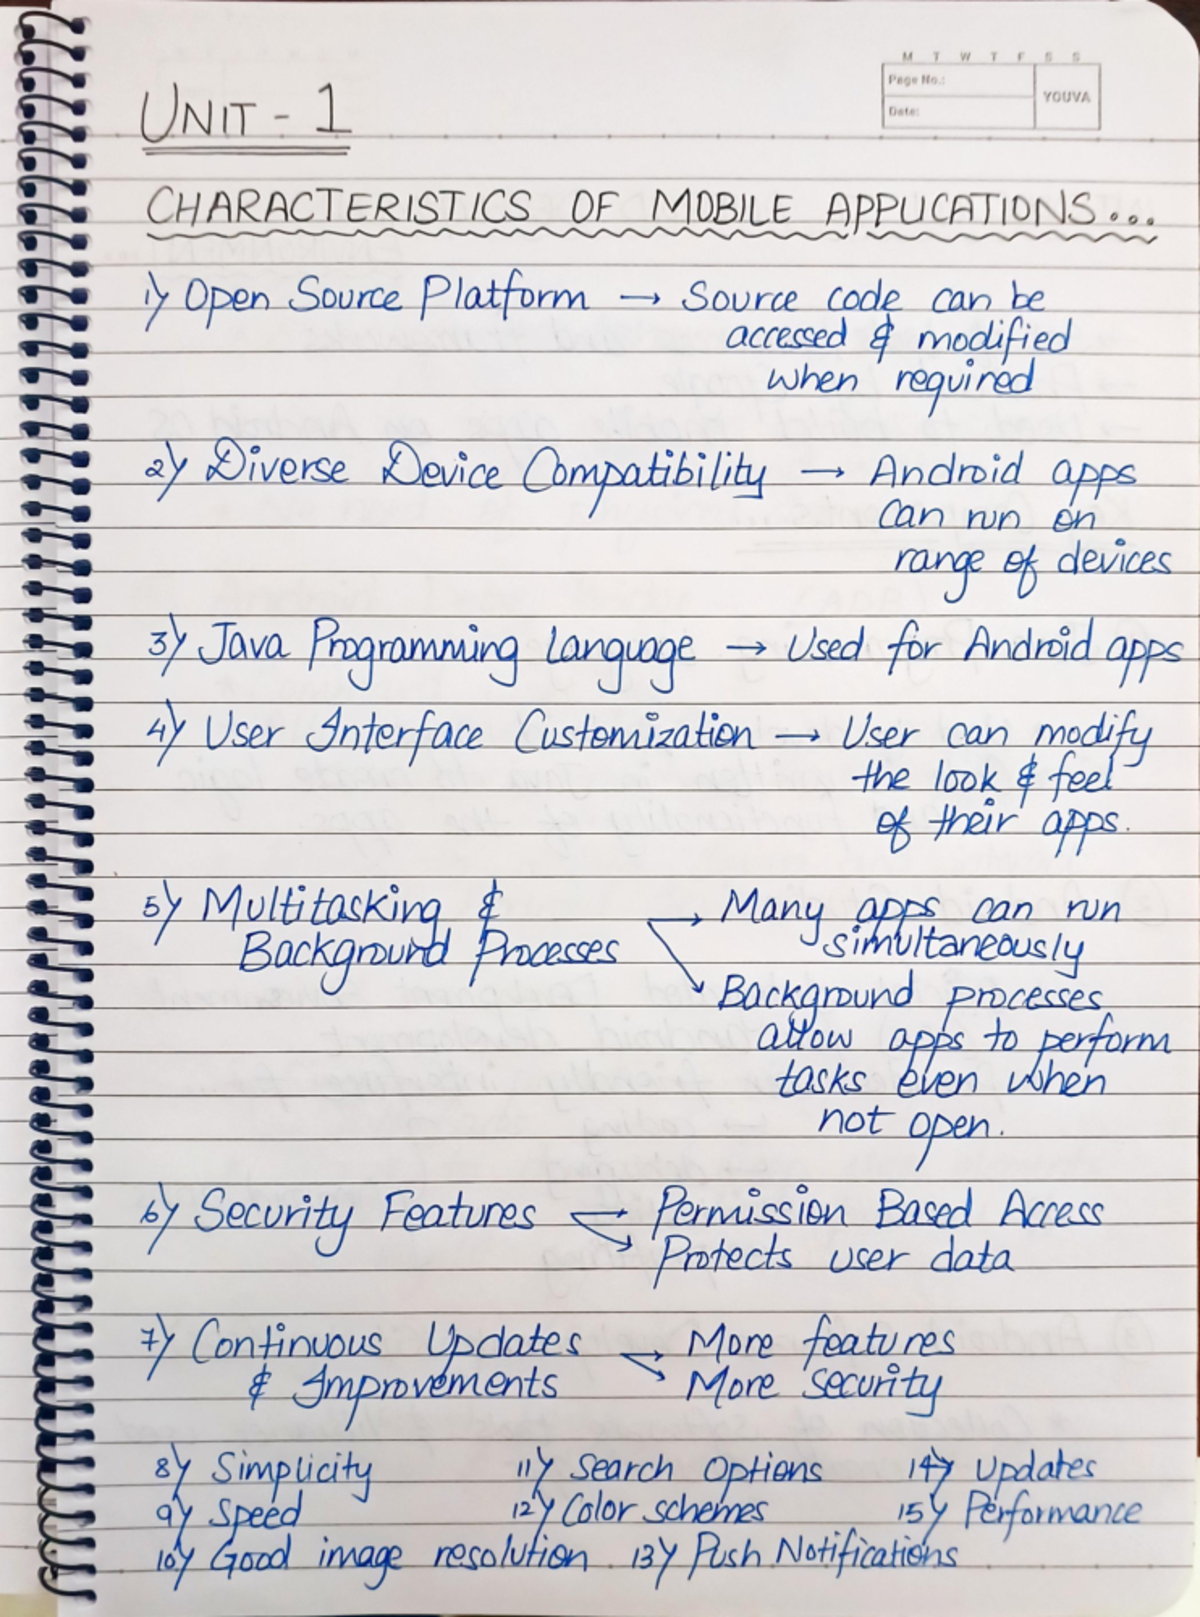 M T W T F S S
Page No.:
YOUVA
Date:
UNIT - 1
CHARACTERISTICS OF MOBILE APPLICATIONS...
1) Open Source Platform → Source code can be
accessed & modified
when required
2) Diverse Device Compatibility → Android apps
can run on
range of devices
3) Java Programming Language → Used for Android apps
4) User Interface Customization → User can modify
the look & feel
of their apps.
5) Multitasking & → Many apps can run
Background Processes simultaneously
↘ Background processes
allow apps to perform
tasks even when
not open.
6) Security Features → Permission Based Access
↘ Protects user data
7) Continuous Updates → More features
& Improvements ↘ More security
8) Simplicity 11) Search Options 14) Updates
9) Speed 12) Color schemes 15) Performance
10) Good image resolution 13) Push Notifications